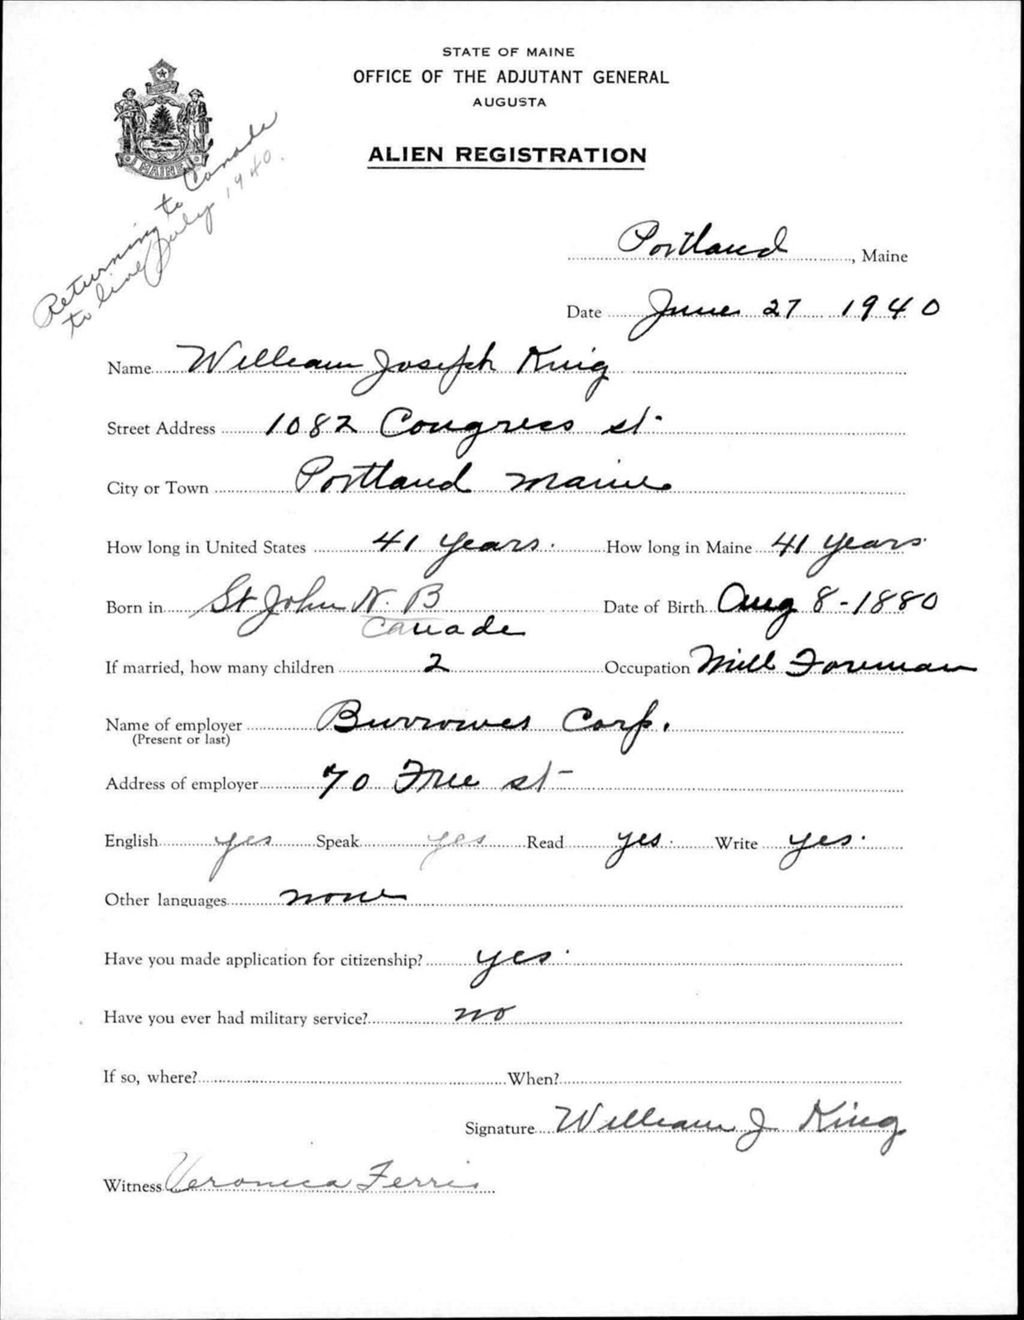 STATE OF MAINE
OFFICE OF THE ADJUTANT GENERAL
AUGUSTA
ALIEN REGISTRATION
MAINE
Returning to Canada
to live July 1940.
Portland, Maine
Date June 27 1940
Name William Joseph King
Street Address 1082 Congress st.
City or Town Portland Maine
How long in United States 41 years. How long in Maine 41 years
Born in St John N. B Date of Birth Aug 8-1880
Canada
If married, how many children 2 Occupation Mill Foreman
Name of employer Burrowes Corp.
(Present or last)
Address of employer 70 Free st-
English yes Speak yes Read yes. Write yes.
Other languages none
Have you made application for citizenship? yes.
Have you ever had military service? no
If so, where? When?
Signature William J King
Witness Veronica Ferris